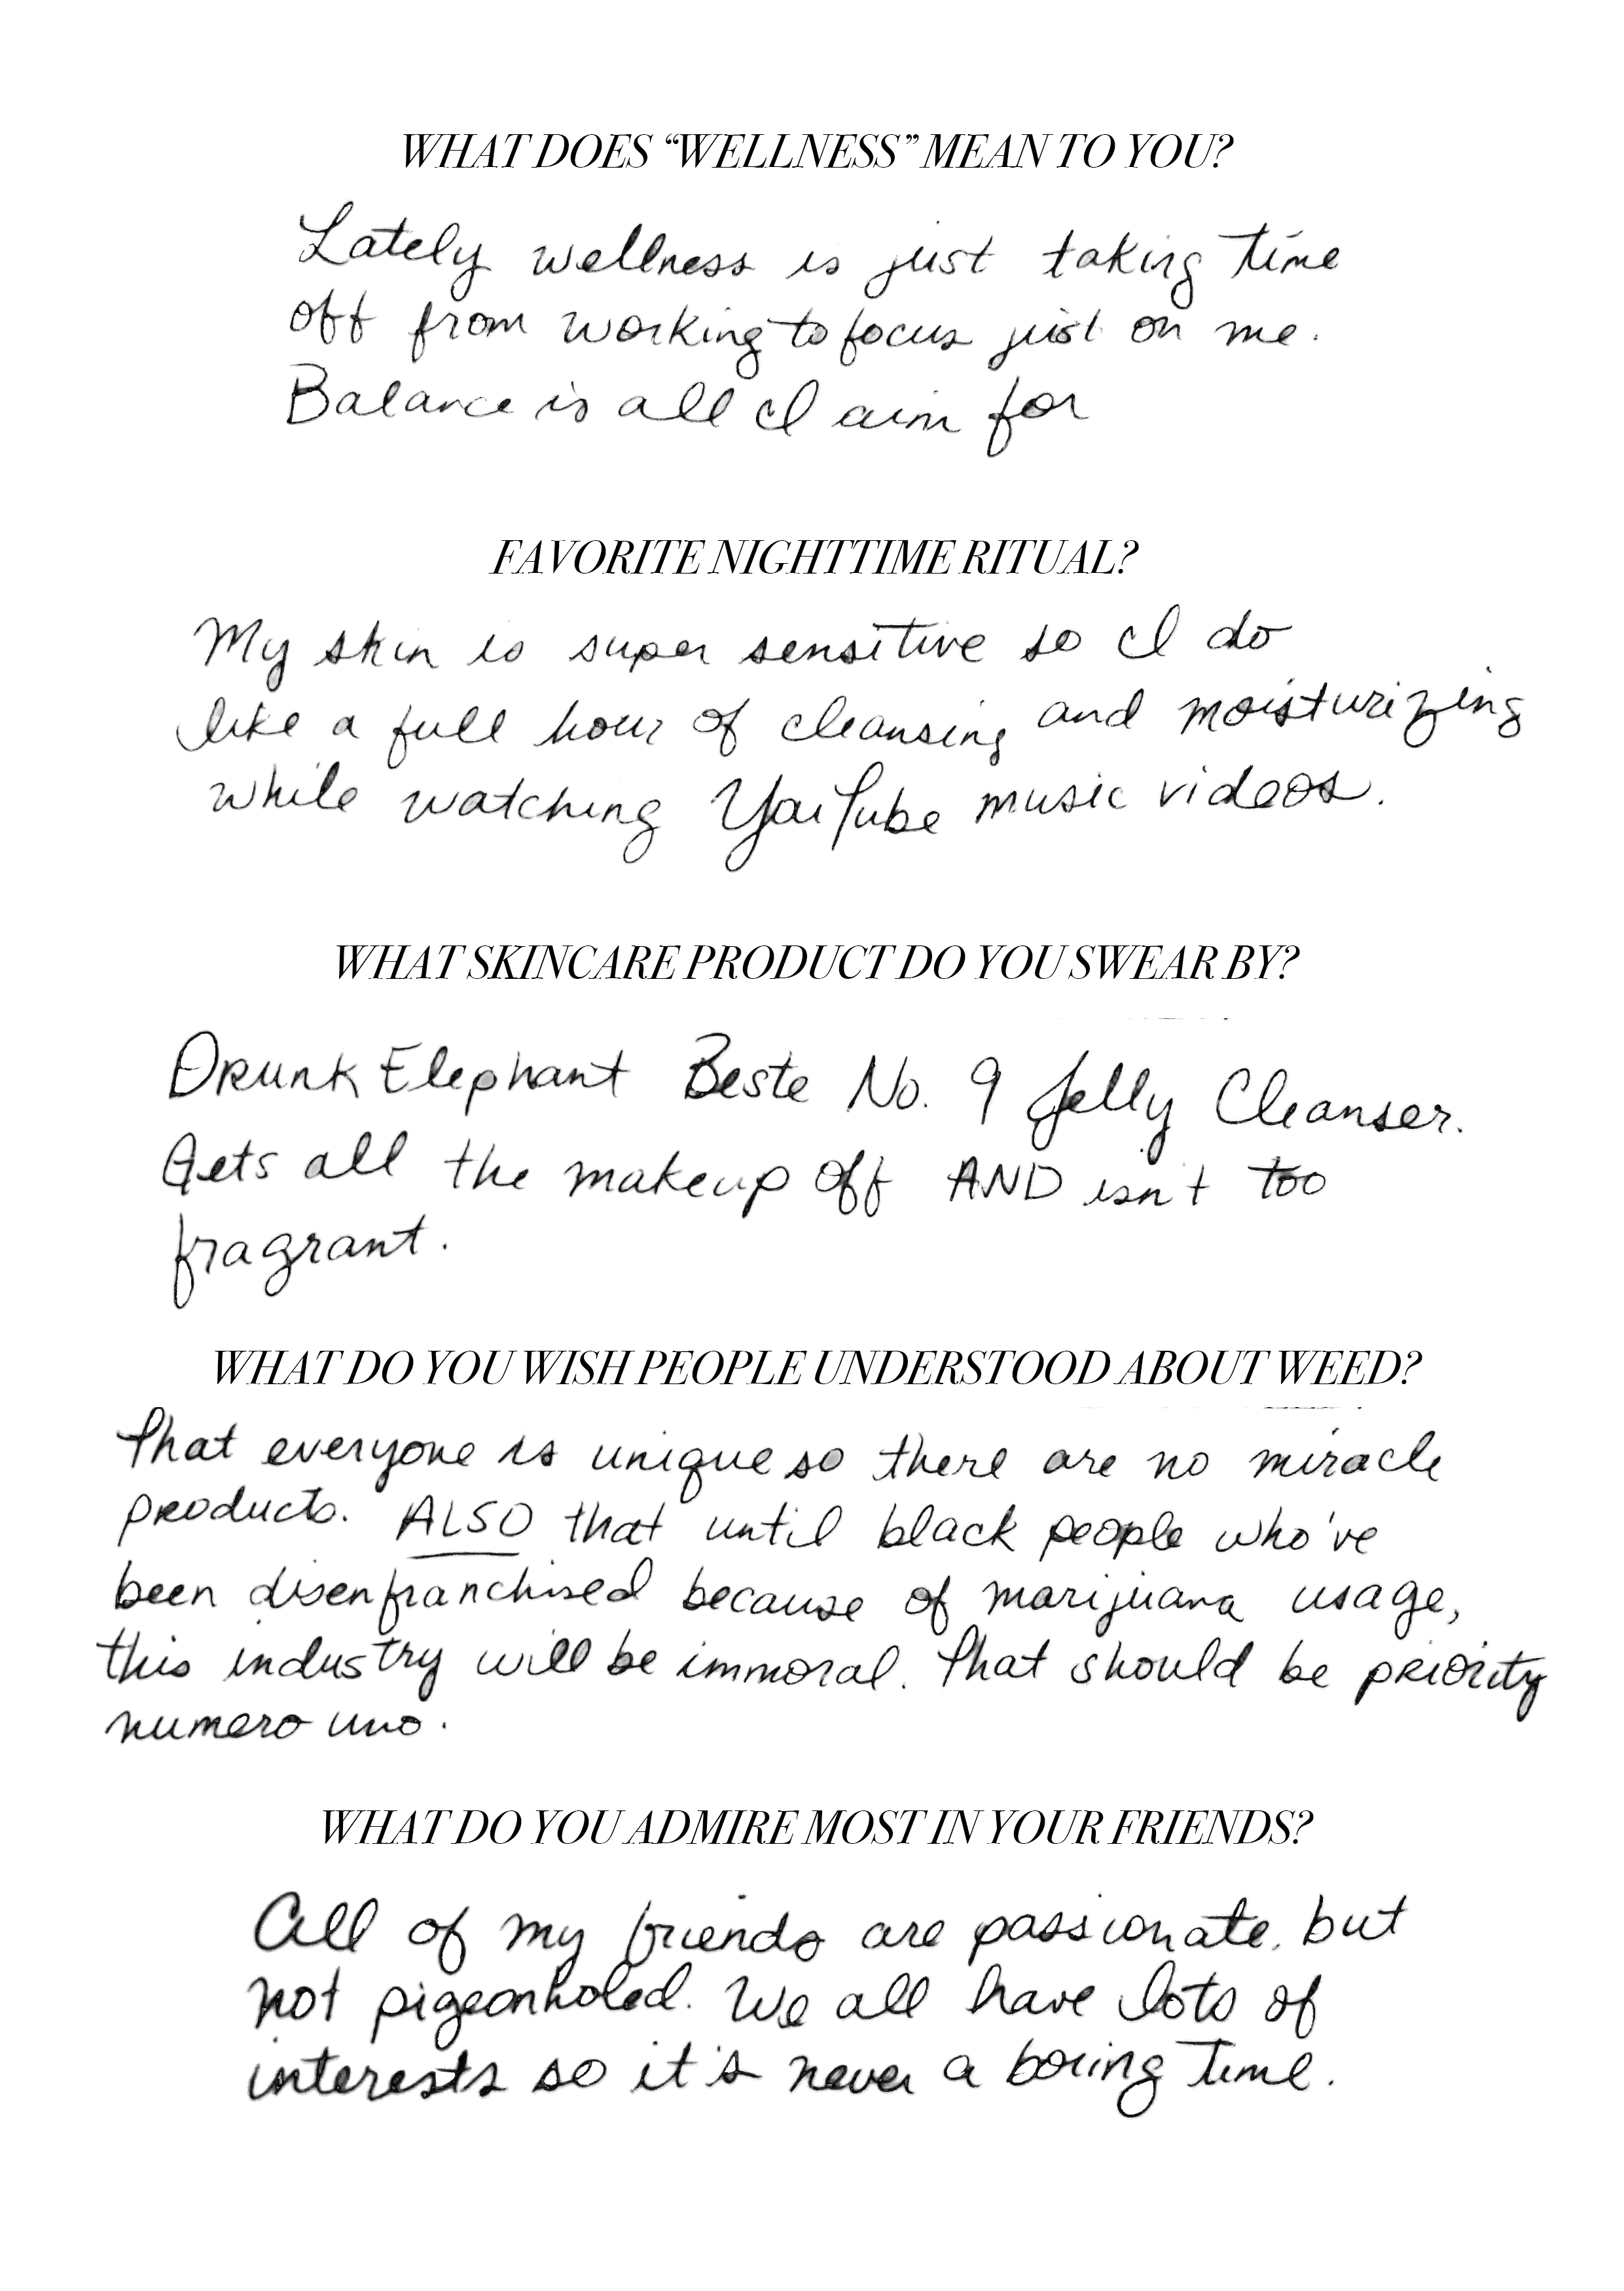 WHAT DOES “WELLNESS” MEAN TO YOU?
Lately wellness is just taking time
off from working to focus just on me.
Balance is all I aim for
FAVORITE NIGHTTIME RITUAL?
My skin is super sensitive so I do
like a full hour of cleansing and moisturizing
while watching YouTube music videos.
WHAT SKINCARE PRODUCT DO YOU SWEAR BY?
Drunk Elephant Beste No. 9 Jelly Cleanser.
Gets all the makeup off AND isn't too
fragrant.
WHAT DO YOU WISH PEOPLE UNDERSTOOD ABOUT WEED?
That everyone is unique so there are no miracle
products. ALSO that until black people who've
been disenfranchised because of marijuana usage,
this industry will be immoral. That should be priority
numero uno.
WHAT DO YOU ADMIRE MOST IN YOUR FRIENDS?
All of my friends are passionate, but
not pigeonholed. We all have lots of
interests so it's never a boring time.